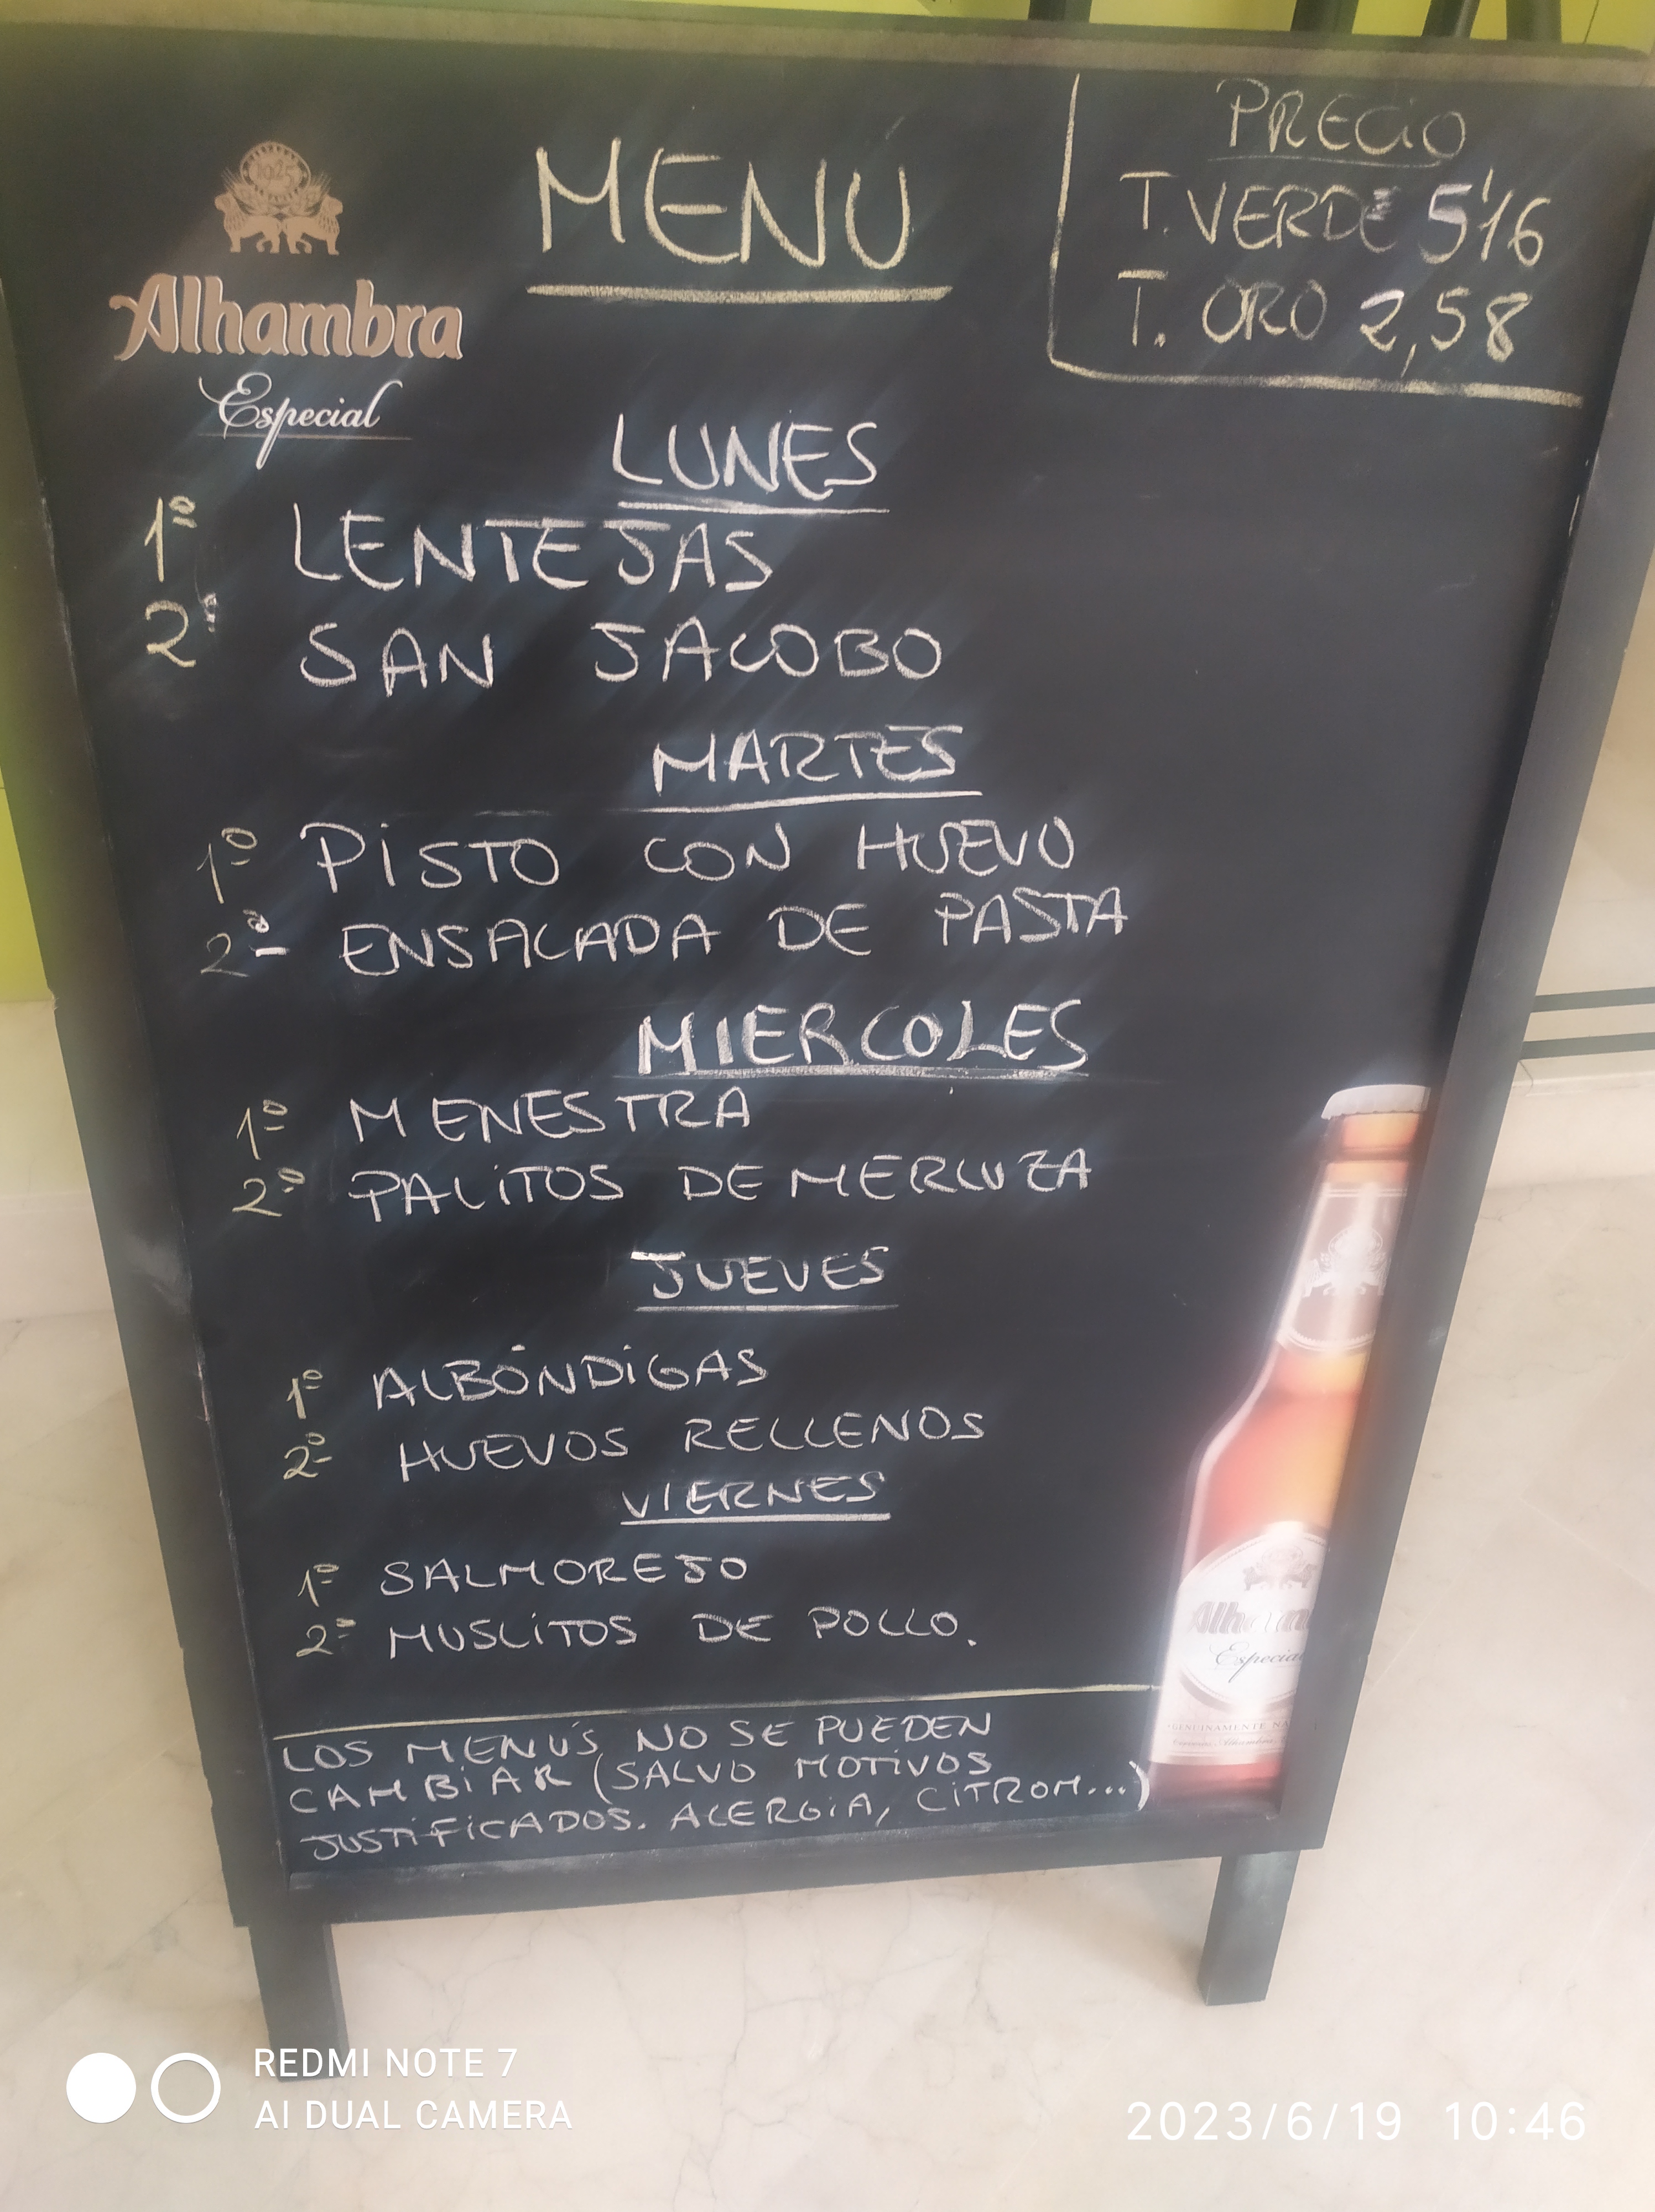 1925
Alhambra
Especial
MENÚ
PRECIO
T. VERDE 5'16
T. ORO 2,58
LUNES
1º LENTEJAS
2º SAN JACOBO
MARTES
1º PISTO CON HUEVO
2º ENSALADA DE PASTA
MIERCOLES
1º MENESTRA
2º PALITOS DE MERLUZA
JUEVES
1º ALBÓNDIGAS
2º HUEVOS RELLENOS
VIERNES
1º SALMOREJO
2º MUSLITOS DE POLLO.
LOS MENÚS NO SE PUEDEN
CAMBIAR (SALVO MOTIVOS
JUSTIFICADOS. ALERGIA, CITROM...)
Alhambra
Especial
GENUINAMENTE
REDMI NOTE 7
AI DUAL CAMERA
2023/6/19 10:46